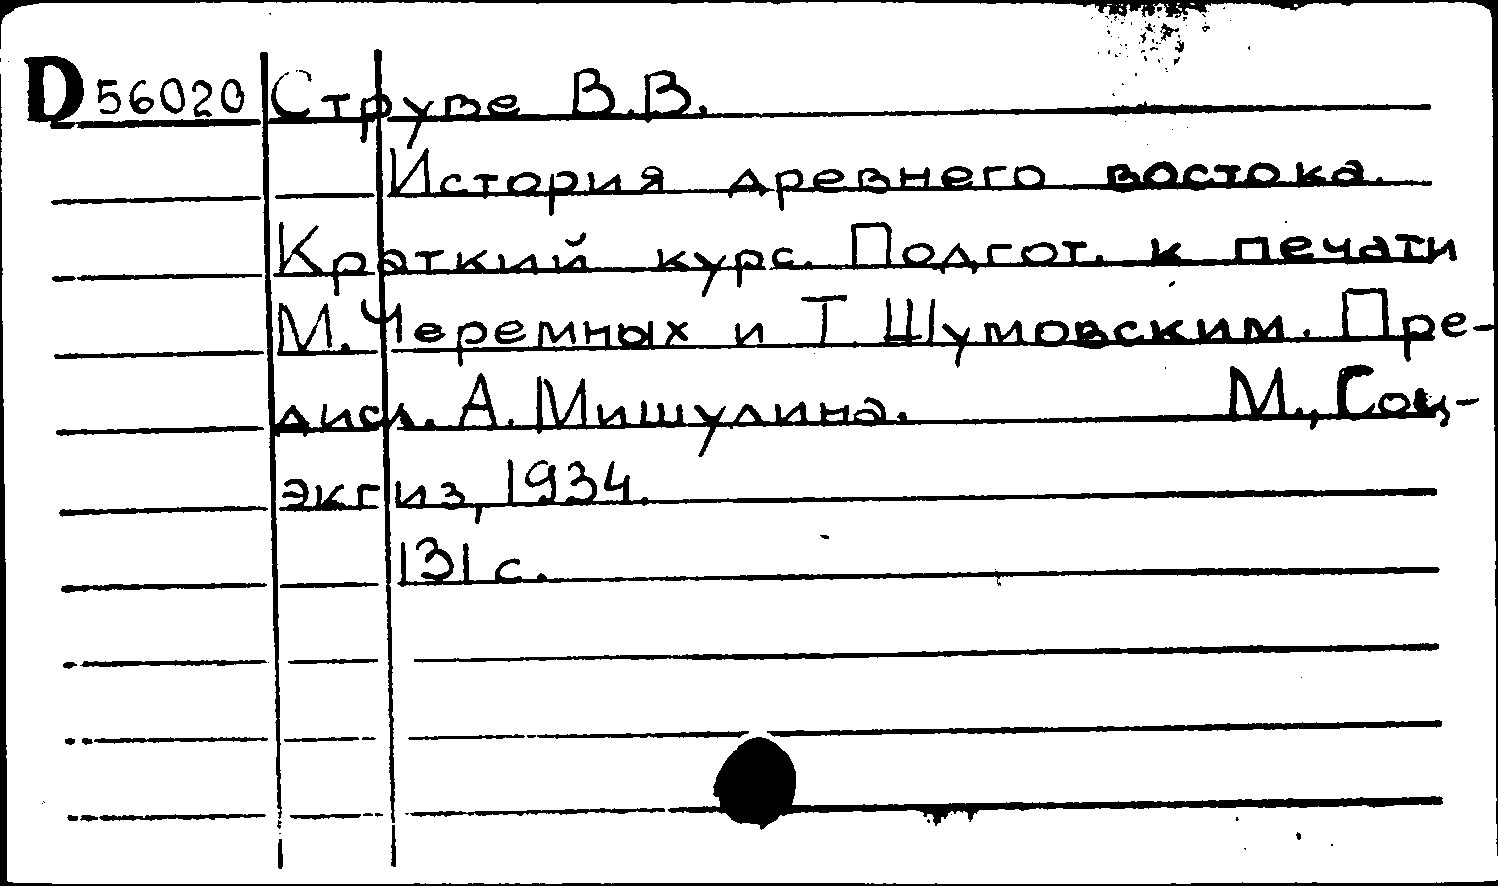 D 56020 Струве В.В.
История древнего востока.
Краткий курс. Подгот. к печати
М. Черемных и Т Шумовским. Пре-
дисл. А. Мишулина. М., Соц-
экгиз, 1934.
131 с.